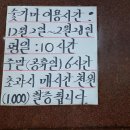 숯가마 이용시간
12월 2일~2월 28일
평일:10시간
주말(공휴일)6시간
초과시 매시간 천원
(1000) 받습니다.